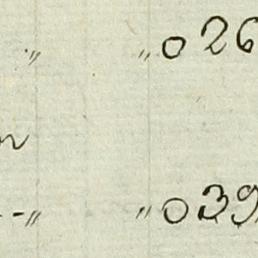 „ „ 026
- - „ „ 039